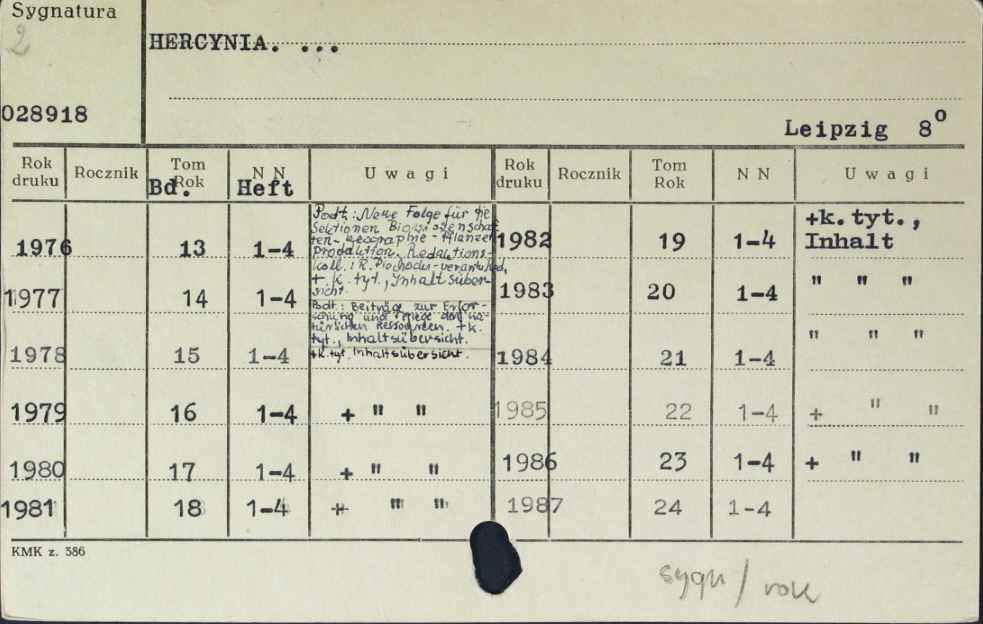 Sygnatura
2
HERCYNIA. ...
028918
Leipzig 8°
Rok druku Rocznik Tom Rok Bd. N N Heft Uwagi Rok druku Rocznik Tom Rok N N Uwagi
Podt.: Neue Folge für die
Sektionen Biowissenschaf
ten- Geographie - Pflanzen
produktion. Redaktions-
koll.: R.
+ k. tyt., Inhaltsüber-
sicht.
1976 13 1-4
1977 14 1-4
Podt.: Beiträge zur Erfor-
schung und Pflege der na-
türlichen Ressourcen. +k.
tyt., Inhaltsübersicht.
1978 15 1-4 +k.tyt. Inhaltsübersicht.
1979 16 1-4 + " "
1980 17 1-4 + " "
1981 18 1-4 + " "
1982 19 1-4 +k.tyt., Inhalt
1983 20 1-4 " " "
1984 21 1-4 " " "
1985 22 1-4 + " "
1986 23 1-4 + " "
1987 24 1-4
KMK z. 386
sygn / rok